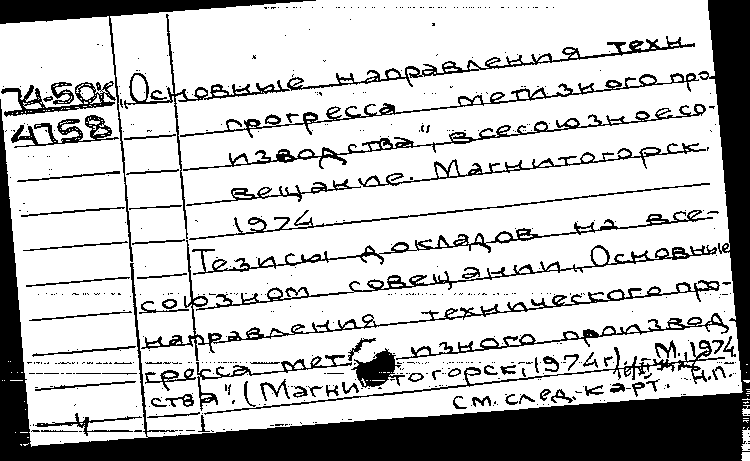 74-50К „Основные направления техн
4758 прогресса метизного про-
изводства", всесоюзное со-
вещание. Магнитогорск.
1974
Тезисы докладов на все-
союзном совещании „Основные
направления технического про-
гресса метизного производ-
ства". (Магнитогорск, 1974г). М., 1974
Н.П.
см. след. карт.
4